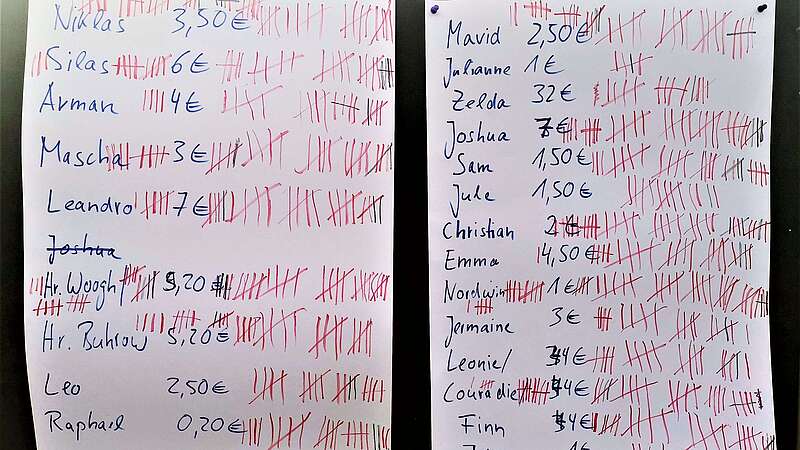 Niklas 3,50€
Silas 6€
Arman 4€
Mascha 3€
Leandro 7€
Joshua
Hr. Wooghy 5,20€
Hr. Buhrow 5,20€
Leo 2,50€
Raphael 0,20€
Mavid 2,50€
Julianne 1€
Zelda 32€
Joshua 7€
Sam 1,50€
Jule 1,50€
Christian 2€
Emma 4,50€
Nordwin 1€
Jermaine 3€
Leonie/ 4€
Couradie 4€
Finn 4€
1€